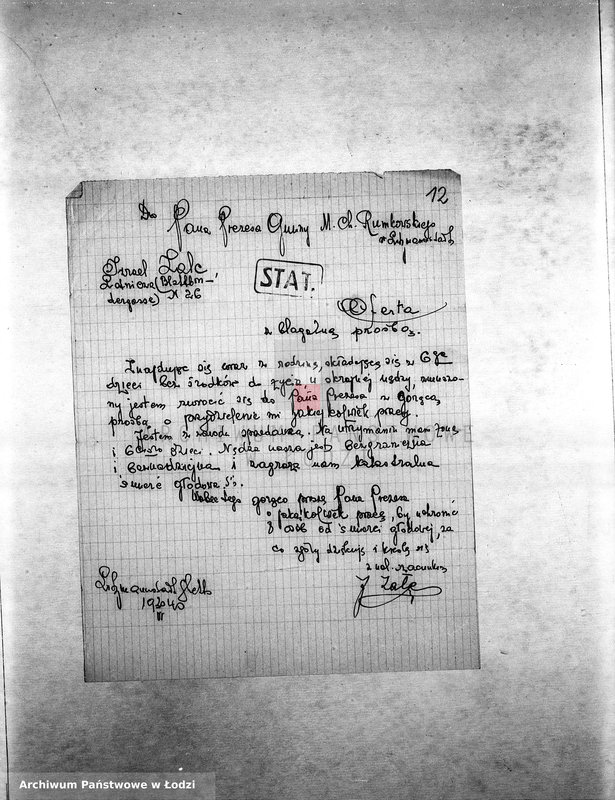 12
Do
Pana Prezesa Gminy M. Ch. Rumkowskiego
Litzmannstadt
Israel Zalc
Żołnierza (Blattbin-
dergasse) N 26
STAT.
Oferta
z błagalną prośbą.
Znajdując się wraz z rodziną, składającą się z 6-ga
dzieci bez środków do życia, w skrajnej nędzy, zmuszo-
ny jestem zwrócić się do Pana Prezesa z gorącą
prośbą o przydzielenie mi jakiejkolwiek pracy.
Jestem z zawodu Na utrzymaniu mam żonę
i 6-cioro dzieci. Nędza nasza jest bezgraniczna
i beznadziejna i zagraża nam katastralna
śmierć głodowa
Wobec tego gorąco proszę Pana Prezesa
o jakąkolwiek pracę, by uchronić
8 osób od śmierci głodowej, za
co zgóry dziękuję i kreślę się
z szacunkiem
J Zalc
Litzmannstadt Ghetto
19 40
VI
Archiwum Państwowe w Łodzi